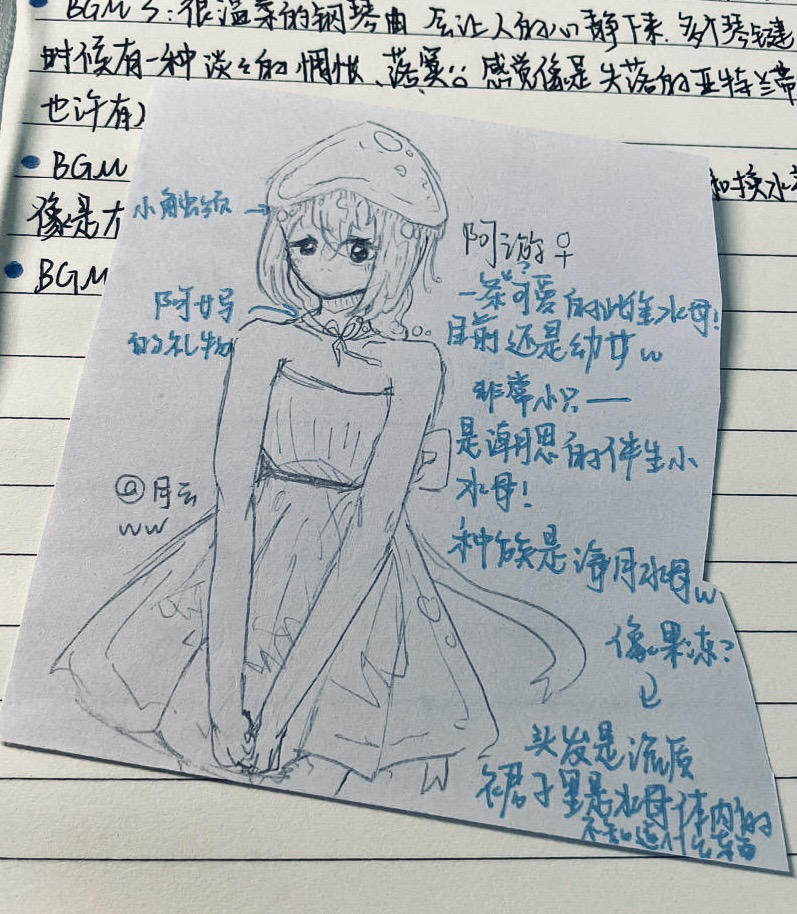 BGM 3:很温柔的钢琴曲 会让人的心静下来.
时候有一种淡淡的惆怅、落寞。感觉像是失落的亚特兰蒂
也许有
BGM
和换水
像是
BGM
小触须
阿妈
的礼物
@月云
ww
阿游♀
一条可爱的雌性水母!
目前还是幼女w
非常小只一
是潮思的伴生小
水母!
种族是海月水母w
像果冻?
头发是流质
裙子里是水母体内的
不知道什么东西